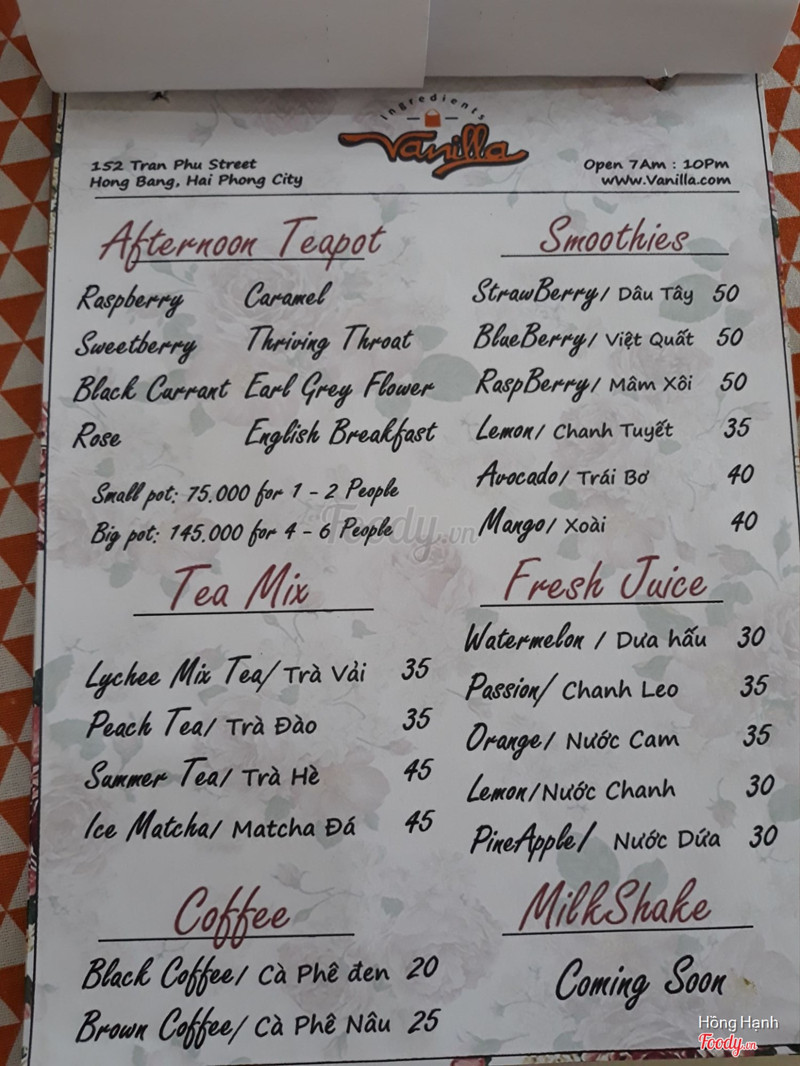 Ingredients
Vanilla
152 Tran Phu Street
Hong Bang, Hai Phong City
Open 7Am : 10Pm
wWw.Vanilla.com
Afternoon Teapot
Raspberry Caramel
Sweetberry Thriving Throat
Black Currant Earl Grey Flower
Rose English Breakfast
Small pot: 75.000 for 1 - 2 People
Big pot: 145.000 for 4 - 6 People
Tea Mix
Lychee Mix Tea/ Trà Vải 35
Peach Tea/ Trà Đào 35
Summer Tea/ Trà Hè 45
Ice Matcha/ Matcha Đá 45
Coffee
Black Coffee/ Cà Phê đen 20
Brown Coffee/ Cà Phê Nâu 25
Smoothies
StrawBerry/ Dâu Tây 50
BlueBerry/ Việt Quất 50
RaspBerry/ Mâm Xôi 50
Lemon/ Chanh Tuyết 35
Avocado/ Trái Bơ 40
Mango/ Xoài 40
Fresh Juice
Watermelon / Dưa hấu 30
Passion/ Chanh Leo 35
Orange/ Nước Cam 35
Lemon/Nước Chanh 30
PineApple/ Nước Dứa 30
MilkShake
Coming Soon
Foody.vn
Hồng Hạnh
Foody.vn